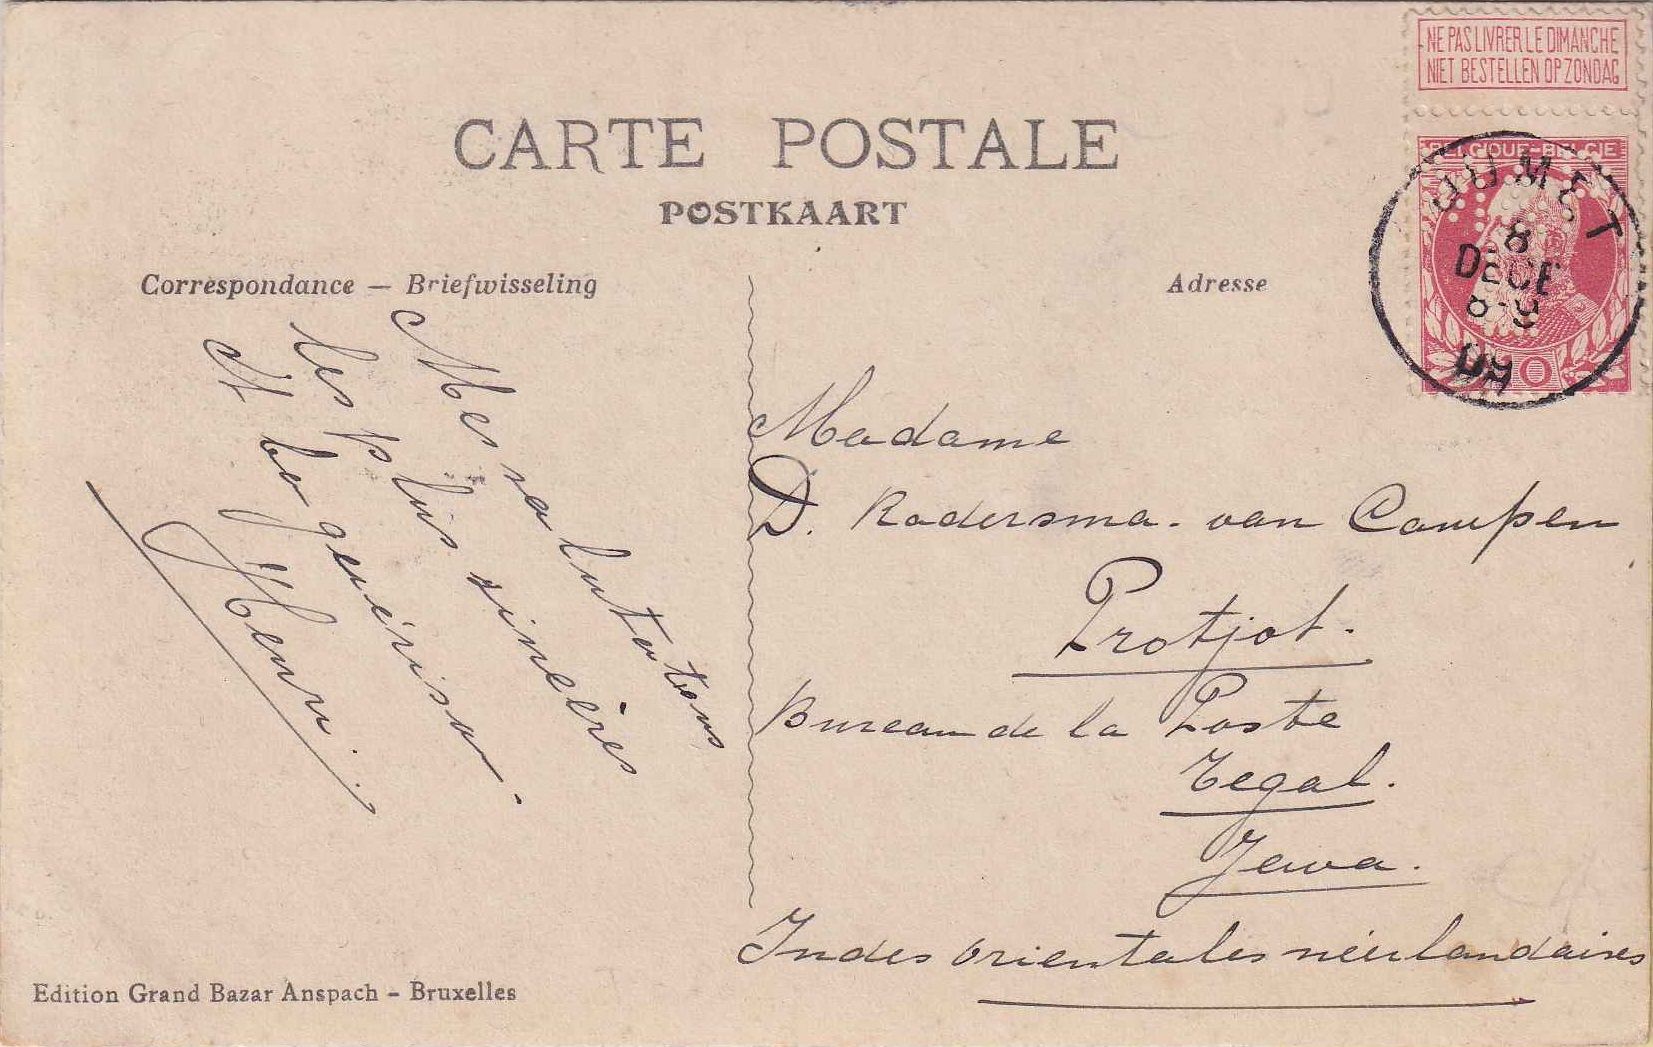 NE PAS LIVRER LE DIMANCHE
NIET BESTELLEN OP ZONDAG
BELGIQUE-BELGIE
JUMET
8
DECE
8-9
10
CARTE POSTALE
POSTKAART
Correspondance — Briefwisseling
Adresse
Mes salutations
les plus sincères
& bo guérison.
Henri.
Madame
D. Radersma-van Campen
Protjot.
Bureau de la Poste
Tegal.
Java.
Indes orientales néerlandaises
Edition Grand Bazar Anspach – Bruxelles